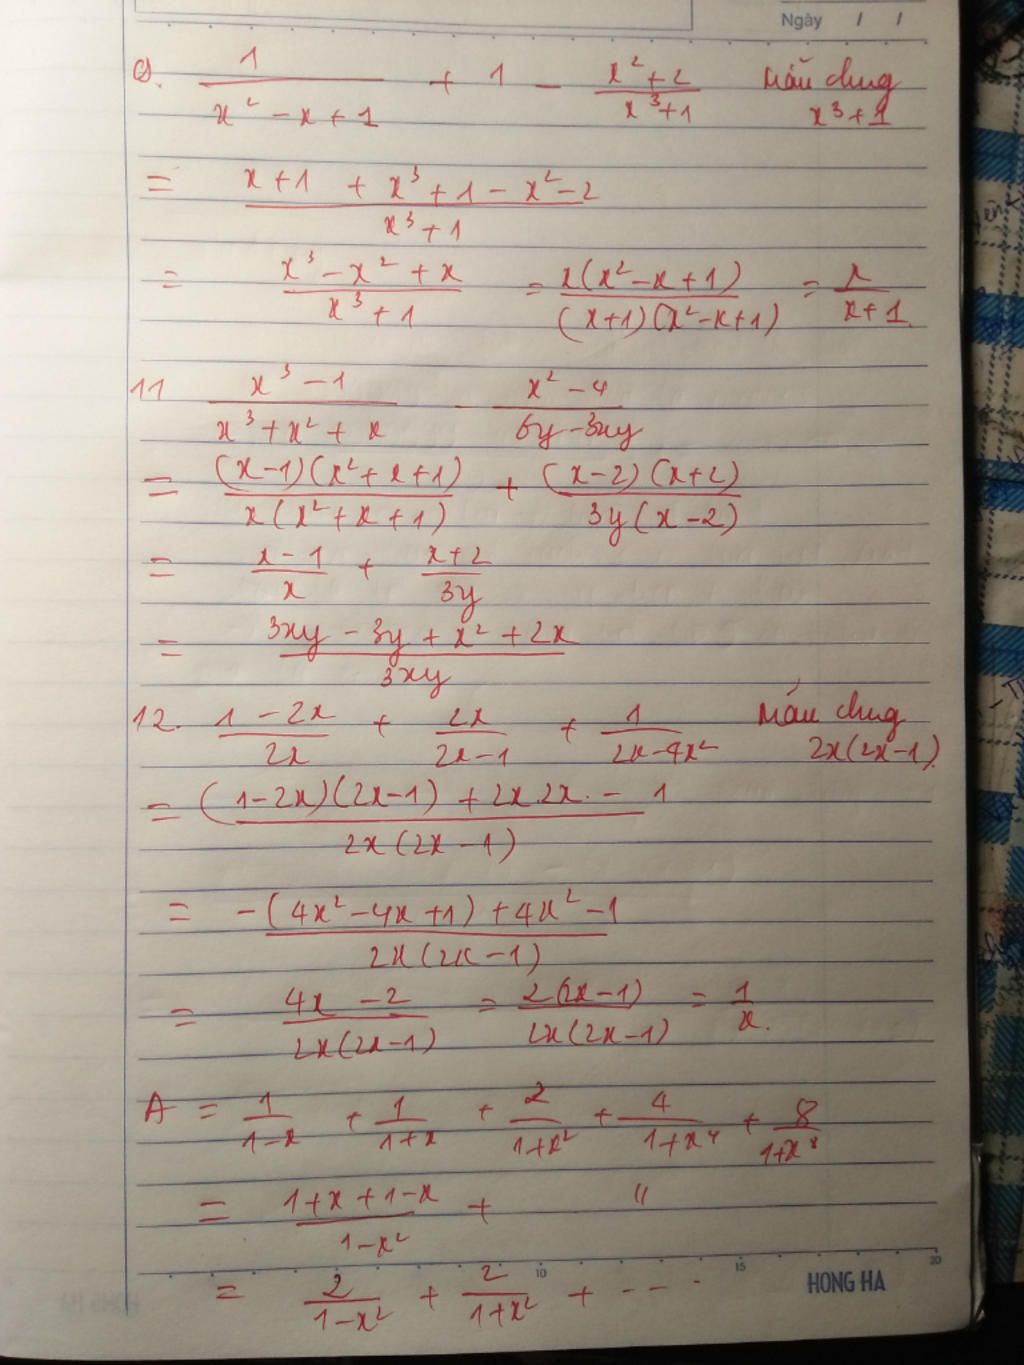 Ngày / /
9. 1/(x² - x + 1) + 1 - (x² + 2)/(x³ + 1) Mẫu chung x³ + 1
= (x + 1 + x³ + 1 - x² - 2)/(x³ + 1)
= (x³ - x² + x)/(x³ + 1) = x(x² - x + 1)/((x + 1)(x² - x + 1)) = x/(x + 1).
11 (x³ - 1)/(x³ + x² + x) - (x² - 4)/(6y - 3xy)
= (x - 1)(x² + x + 1)/(x(x² + x + 1)) + (x - 2)(x + 2)/(3y(x - 2))
= (x - 1)/x + (x + 2)/(3y)
= (3xy - 3y + x² + 2x)/(3xy)
12. (1 - 2x)/(2x) + 2x/(2x - 1) + 1/(2x - 4x²) Mẫu chung 2x(2x - 1)
= ((1 - 2x)(2x - 1) + 2x.2x. - 1)/(2x(2x - 1))
= (-(4x² - 4x + 1) + 4x² - 1)/(2x(2x - 1))
= (4x - 2)/(2x(2x - 1)) = 2(2x - 1)/(2x(2x - 1)) = 1/x.
A = 1/(1 - x) + 1/(1 + x) + 2/(1 + x²) + 4/(1 + x⁴) + 8/(1 + x⁸)
= (1 + x + 1 - x)/(1 - x²) + "
= 2/(1 - x²) + 2/(1 + x²) + ----
10 15 20
HONG HA